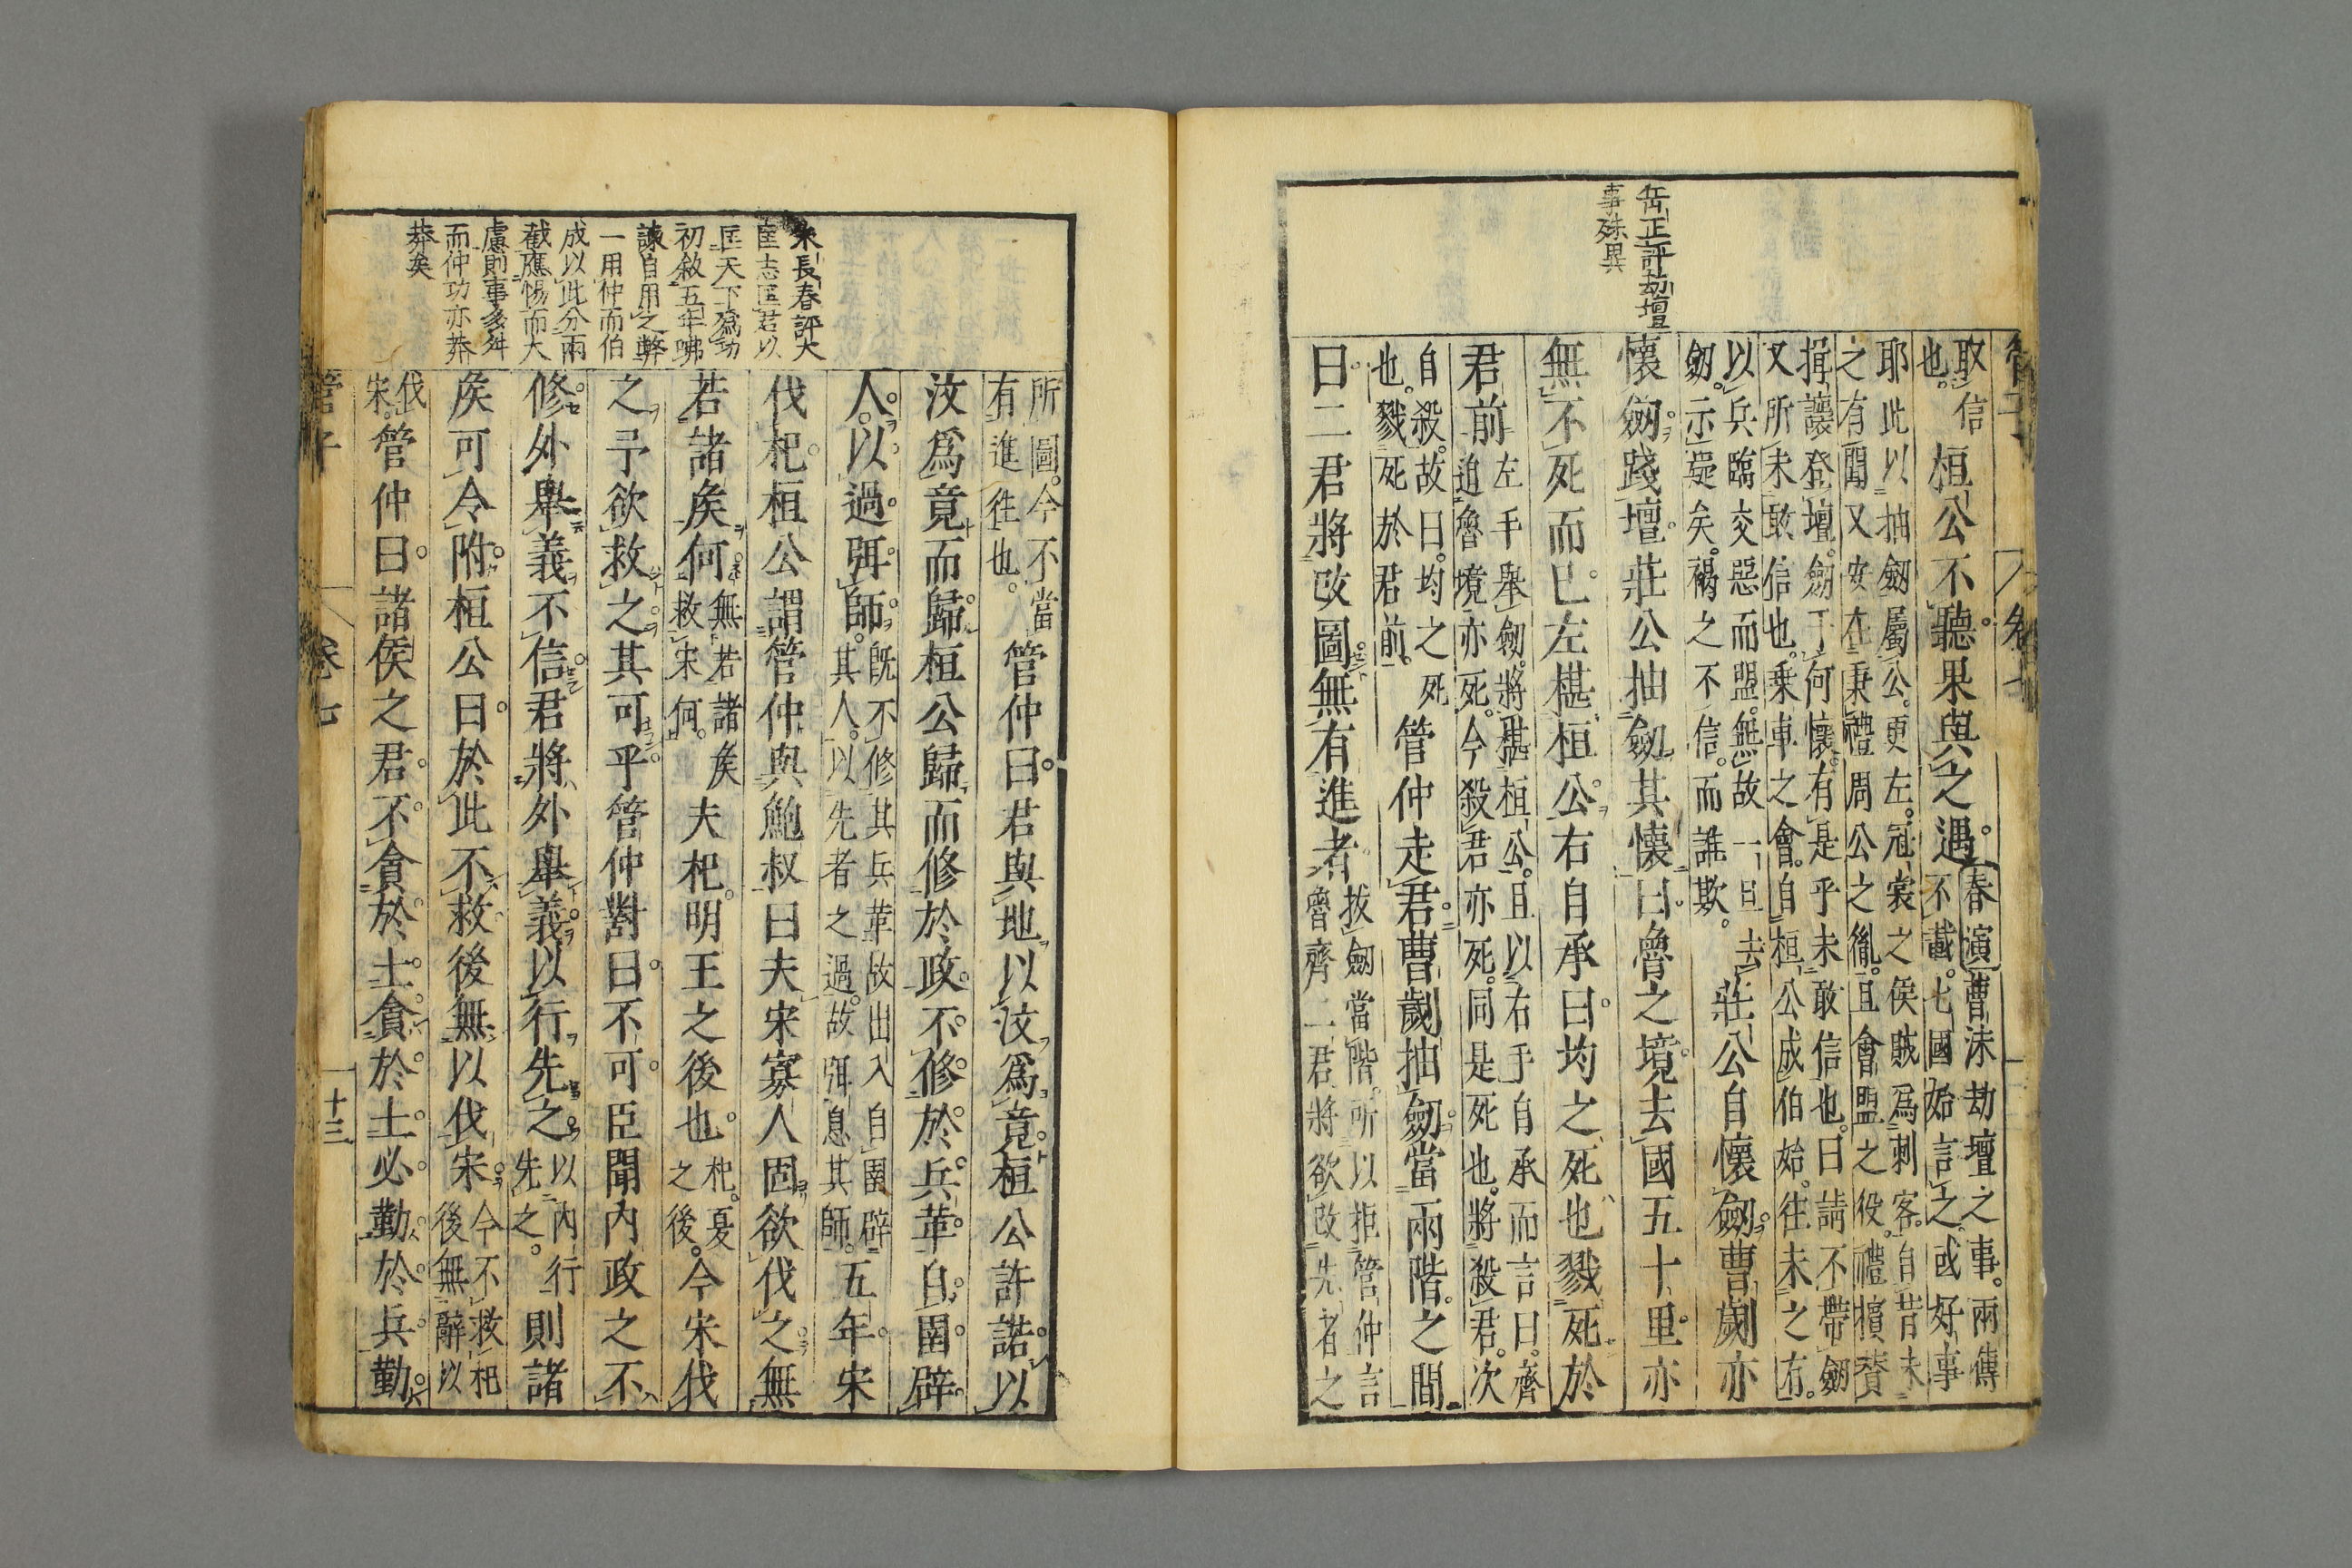 管子 卷七
岳正評劫壇
事殊異
取信
也。
桓公不聽。果與之遇。
春演曹沬劫壇之事。兩傳
不載。七國始言之。或好事
耶此以抽劔屬公。更左。冠裳之侯賊爲刺客。自昔未
之有聞又安在秉禮周公之胤。且會盟之役。禮擯賛
揖讓登壇。劔于何懷。有是乎未敢信也。曰請不帶劔
又所未敢信也。乗車之會。自桓公成伯始。往未之有。
以兵臨交惡而盟。無故一旦去
劔。示疑矣。禍之不信。而誰欺。
莊公自懷劔。曹劌亦
懷劔。踐壇。莊公抽劔其懷曰。魯之境。去國五十里。亦
無不死而已。左椹桓公。右自承曰。均之死也戮死於
君前
左手舉劔。將椹桓公。且以右手自承而言曰。齊
迫魯境亦死。今殺君亦死。同是死也。將殺君。次
自殺。故曰。均之死
也。戮死於君前。
管仲走君。曹劌抽劔。當兩階。之間
曰。二君將改圖。無有進者
拔劔當階。所以拒管仲言
魯齊二君將欲改先者之
朱長春評大
匡志匡君以
匡天下爲功
初敘五年咈
諫自用之弊
一用仲而伯
成以此分兩
截應惕而大
慮則事多舛
而仲功亦莽
莽矣
所圖。今不當
有進往也。
管仲曰。君與地以汶爲竟。桓公許諾。以
汶爲竟而歸。桓公歸而修於政。不修於兵革。自圉。辟
人。以過。弭師。
旣不修其兵革故出入自圉辟
其人。以先者之過。故弭息其師。
五年。宋
伐杞。桓公謂管仲與鮑叔曰夫宋寡人固欲伐之。無
若諸矦何
無若諸矦
救宋何。
夫杞。明王之後也。
杞。夏
之後。
今宋伐
之予欲救之。其可乎。管仲對曰。不可。臣聞內政之不
修。外舉義不信。君將外舉義。以行先之。
以內行
先之。
則諸
矦可令附。桓公曰。於此不救。後無以伐宋。
今不救杞
後無辭以
伐
宋。
管仲曰。諸侯之君。不貪於土。貪於土必勤於兵。勤
管子 卷七 十三